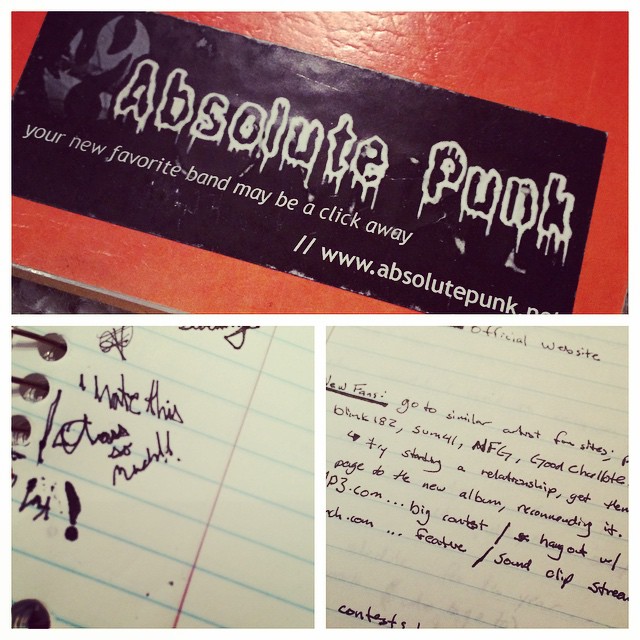 Absolute Punk
your new favorite band may be a click away
// www.absolutepunk.ne
i hate this
class
so
much!!
Official Website
New Fans: go to similar artist fan sites:
blink182, sum41, NFG, Good Charlotte
↳ try starting a relationship, get them
page do the new album, recommending it.
P3.com... big contest / hang out w/
ch.com ... feature / sound clip stream
contests!